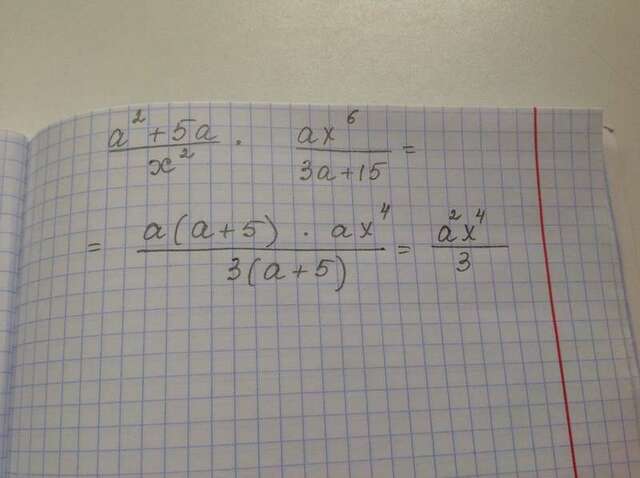 (a² + 5a)/x² · ax⁶/(3a+15) =
= (a(a+5) · ax⁴)/(3(a+5)) = a²x⁴/3